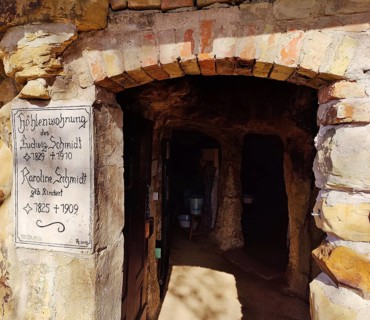 Höhlenwohnung
des
Ludwig Schmidt
1829 + 1910
Karoline Schmidt
geb. Rindert
1825 + 1909